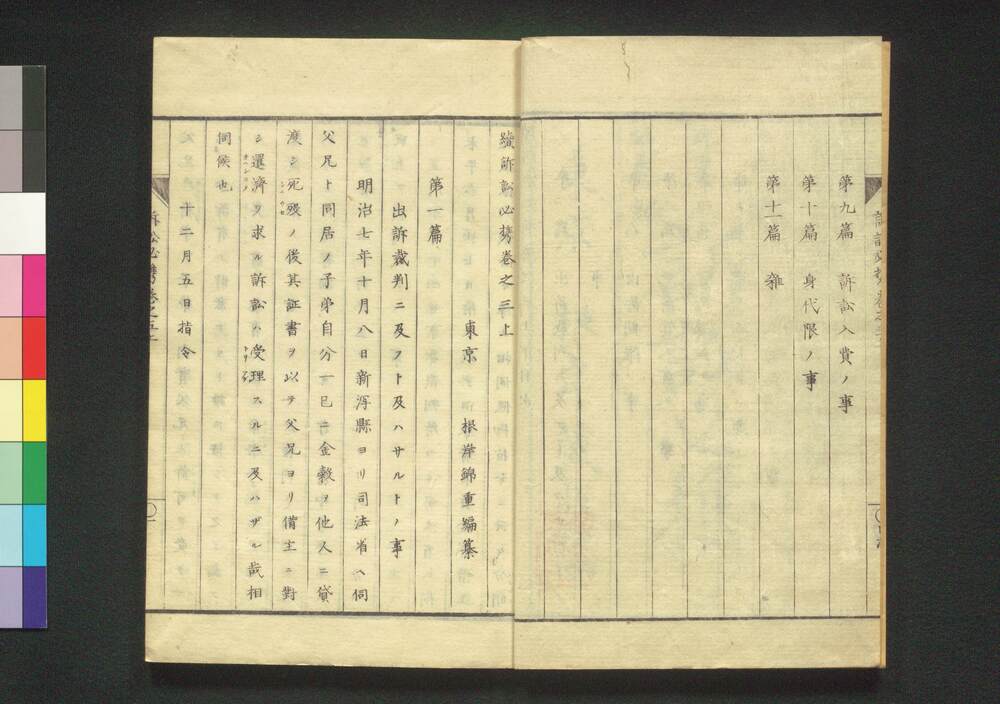 第九篇　訴訟入費ノ事
第十篇　身代限ノ事
第十一篇　雑
續訴訟必携巻之三上
東京　根岸錦重編纂
第一篇
出訴裁判ニ及フト及ハサルトノ事
明治七年十月八日新潟縣ヨリ司法省ヘ伺
父兄ト同居ノ子弟自分一已ニ金穀ヲ他人ニ貸
渡シ死殘ノ後其証書ヲ以テ父兄ヨリ借主ニ對
シ還濟ヲ求ル訴訟ハ受理スルニ及ハザル哉相
伺候也
十二月五日指令